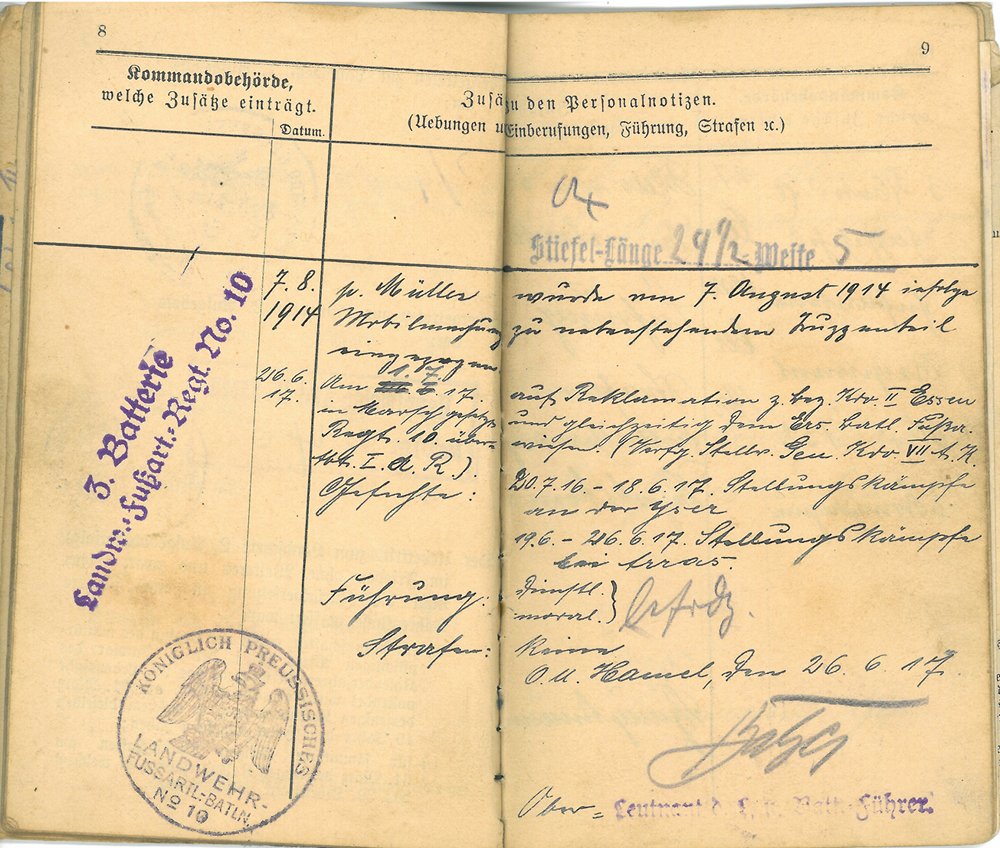 8
9
Kommandobehörde,
welche Zusätze einträgt.
Datum.
Zusä zu den Personalnotizen.
(Uebungen u Einberufungen, Führung, Strafen ꝛc.)
Stiefel-Länge 29½ -Weite 5
3. Batterie
Landw.-Fußart.-Regt. No. 10
7. 8.
1914
p. Müller wurde am 7. August 1914 infolge
Mobilmachung zu nebenstehendem Truppenteil
eingezogen.
26. 6.
17.
1. 7.
Am 17. auf Reklamation z. bez. Kdo. II Essen
in Marsch gesetzt und gleichzeitig dem Ers. Batl. Fußa.
Regt. 10. über- wiesen. (Verfg. Stellv. Gen. Kdo. VII A. K.
Abt. I. d. R.)
Gefechte: 20. 7. 16. - 18. 6. 17. Stellungskämpfe
an der Yser
19. 6. - 26. 6. 17. Stellungskämpfe
bei Arras.
Führung: dienstl. }
moral. }
Strafen: Keine
O. U. Hamel, den 26. 6. 17.
KÖNIGLICH PREUSSISCHES
LANDWEHR-
FUSSARTL.-BATLN.
No 10
Ober= Leutnant d. Batt.-Führer